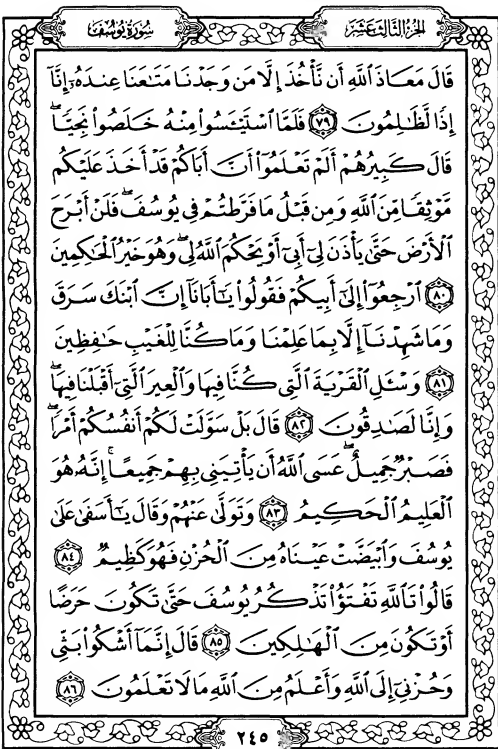 سُورَةُ يُوسُفَ
الجُزءُ الثَّالِثَ عَشَرَ
قَالَ مَعَاذَ ٱللَّهِ أَن نَّأْخُذَ إِلَّا مَن وَجَدْنَا مَتَٰعَنَا عِندَهُۥٓ إِنَّآ
إِذًا لَّظَٰلِمُونَ ٧٩ فَلَمَّا ٱسْتَيْـَٔسُوا۟ مِنْهُ خَلَصُوا۟ نَجِيًّاۖ
قَالَ كَبِيرُهُمْ أَلَمْ تَعْلَمُوٓا۟ أَنَّ أَبَاكُمْ قَدْ أَخَذَ عَلَيْكُم
مَّوْثِقًا مِّنَ ٱللَّهِ وَمِن قَبْلُ مَا فَرَّطتُمْ فِى يُوسُفَۖ فَلَنْ أَبْرَحَ
ٱلْأَرْضَ حَتَّىٰ يَأْذَنَ لِىٓ أَبِىٓ أَوْ يَحْكُمَ ٱللَّهُ لِىۖ وَهُوَ خَيْرُ ٱلْحَٰكِمِينَ
٨٠ ٱرْجِعُوٓا۟ إِلَىٰٓ أَبِيكُمْ فَقُولُوا۟ يَٰٓأَبَانَآ إِنَّ ٱبْنَكَ سَرَقَ
وَمَا شَهِدْنَآ إِلَّا بِمَا عَلِمْنَا وَمَا كُنَّا لِلْغَيْبِ حَٰفِظِينَ
٨١ وَسْـَٔلِ ٱلْقَرْيَةَ ٱلَّتِى كُنَّا فِيهَا وَٱلْعِيرَ ٱلَّتِىٓ أَقْبَلْنَا فِيهَاۖ
وَإِنَّا لَصَٰدِقُونَ ٨٢ قَالَ بَلْ سَوَّلَتْ لَكُمْ أَنفُسُكُمْ أَمْرًاۖ
فَصَبْرٌ جَمِيلٌۖ عَسَى ٱللَّهُ أَن يَأْتِيَنِى بِهِمْ جَمِيعًاۚ إِنَّهُۥ هُوَ
ٱلْعَلِيمُ ٱلْحَكِيمُ ٨٣ وَتَوَلَّىٰ عَنْهُمْ وَقَالَ يَٰٓأَسَفَىٰ عَلَىٰ
يُوسُفَ وَٱبْيَضَّتْ عَيْنَاهُ مِنَ ٱلْحُزْنِ فَهُوَ كَظِيمٌ ٨٤
قَالُوا۟ تَٱللَّهِ تَفْتَؤُا۟ تَذْكُرُ يُوسُفَ حَتَّىٰ تَكُونَ حَرَضًا
أَوْ تَكُونَ مِنَ ٱلْهَٰلِكِينَ ٨٥ قَالَ إِنَّمَآ أَشْكُوا۟ بَثِّى
وَحُزْنِىٓ إِلَى ٱللَّهِ وَأَعْلَمُ مِنَ ٱللَّهِ مَا لَا تَعْلَمُونَ ٨٦
٢٤٥